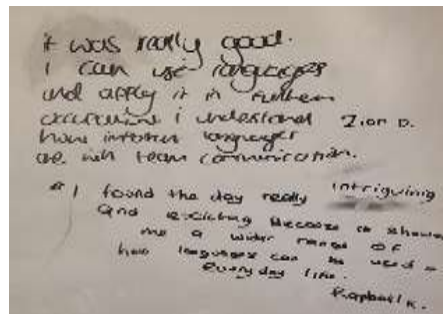 it was really good.
I can use languages
and apply it in
i understand Zion D.
how languages
are with team communication.
"I found the day really intriguing
and exciciting because it showed
me a wider range of
how languages can be used -
everyday life.
Raphael K.